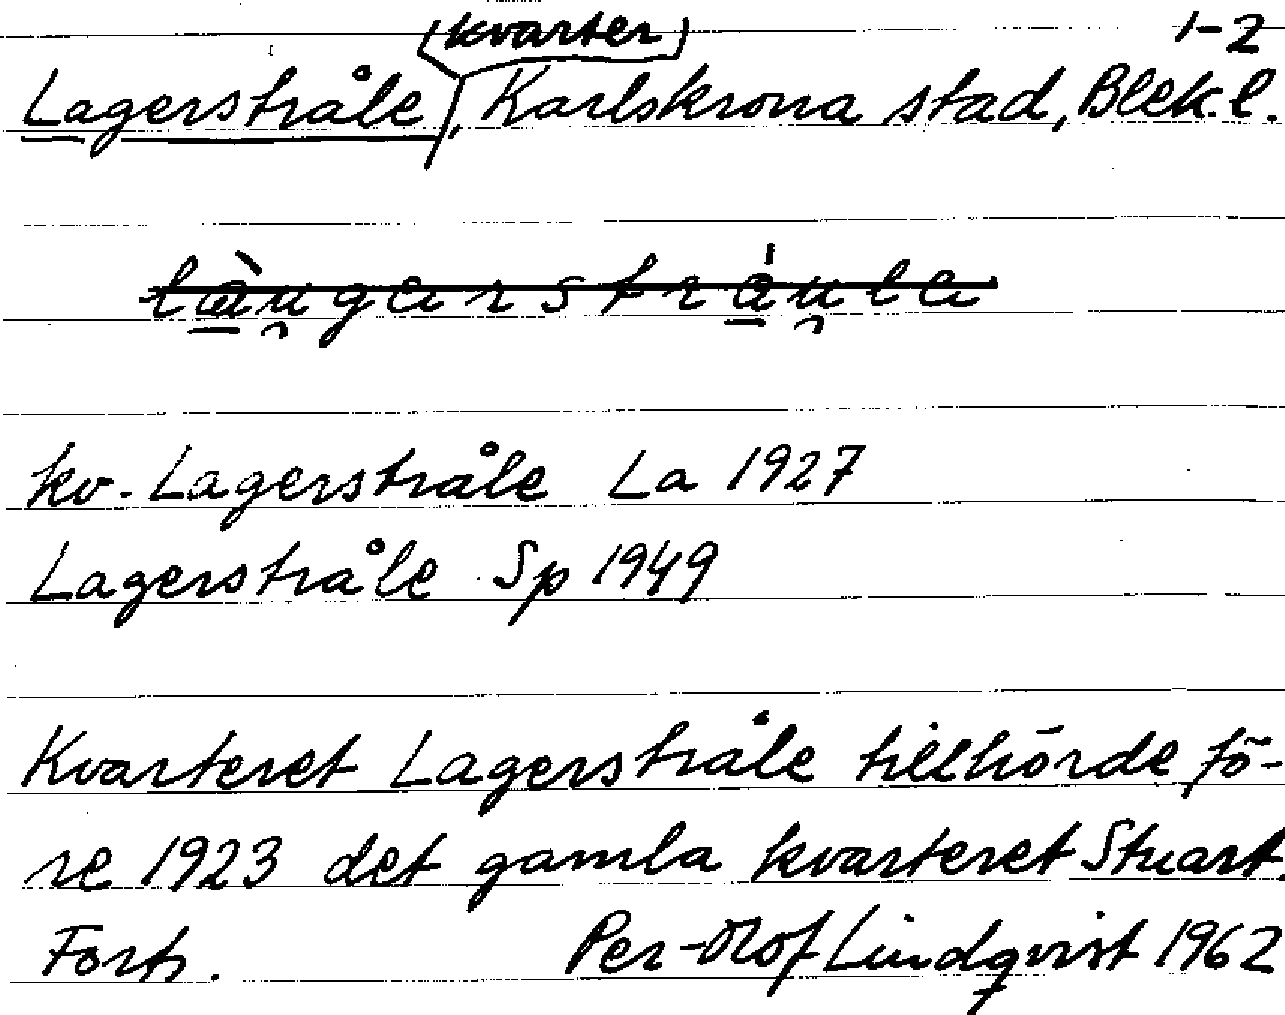 (kvarter) 1-2
Lagerstråle, Karlskrona stad, Blek. l.
kv. Lagerstråle La 1927
Lagerstråle Sp 1949
Kvarteret Lagerstråle tillhörde fö-
re 1923 det gamla kvarteret Stuart.
Forts. Per-Olof Lindqvist 1962